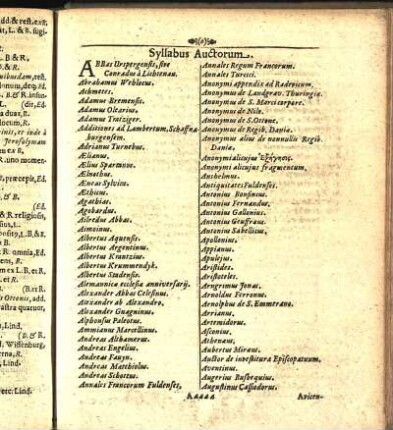 dd. & rest. ext.
L. & B. sugi-
L. B & R,
D. & R.
B. & R.
(Ed,
& B.
(Ed.
& R. religiosis,
L. & B.
omnia, Ed.
L. & R.
(B. et R.
Lind,
(B. & R.
Wissenburg,
Lind-
Lind-
Syllabus Auctorum.
ABBas Urspergensis, sive
Conradus à Lichtenau.
Abrahamus Weblocus.
Achmetes.
Adamus Bremensis.
Adamus Olearius.
Adamus Tratziger.
Additiones ad Lambertum, Schaffna-
burgensem.
Adrianus Turnebus.
Ælianus.
Ælius Sparmine.
Ælnothus.
Æneas Sylvius.
Æthicus.
Agathias.
Agobardus.
Ailredus Abbas.
Aimoinus.
Albertus Aquensis.
Albertus Argentinus.
Albertus Krantzius.
Albertus Krummendyk.
Albertus Stadensis.
Alemannica ecclesia anniversarij.
Alexander Abbas Celesinus.
Alexander ab Alexandro.
Alexander Guagninus.
Alphonsus Paleotus.
Ammianus Marcellinus.
Andreas Althamerus.
Andreas Engelius.
Andreas Favyn.
Andreas Matthiolus.
Andreas Schottus.
Annales Francorum Fuldenses,
Annales Regum Francorum.
Annales Turcici.
Anonymi appendix ad Radevicum.
Anonymus de Landgrav. Thuringiæ.
Anonymus de S. Marci corpore.
Anonymus de Nilo.
Anonymus de S. Ottone.
Anonymus de Regib. Daniæ.
Anonymus alius de nonnullis Regib.
Daniæ.
Anonymi alicujus ἐξήγησις.
Anonymi alicujus fragmentum,
Anthelmus.
Antiquitates Fuldenses.
Antonius Bonfinius.
Antonius Fernandus,
Antonius Gallonius.
Antonius Geuffraus.
Antonius Sabellicus.
Apollonius,
Appianus.
Apulejus.
Aristides.
Aristoteles.
Arngrimus Jonas.
Arnoldus Ferronus.
Arnolphus de S. Emmerano.
Arrianus.
Artemidorus.
Asconius.
Athenæus,
Aubertus Miræus.
Auctor de investitura Episcopatuum.
Aventinus.
Augerius Busbequius.
Augustinus Cassiodorus.
Aaaaa
Avien-